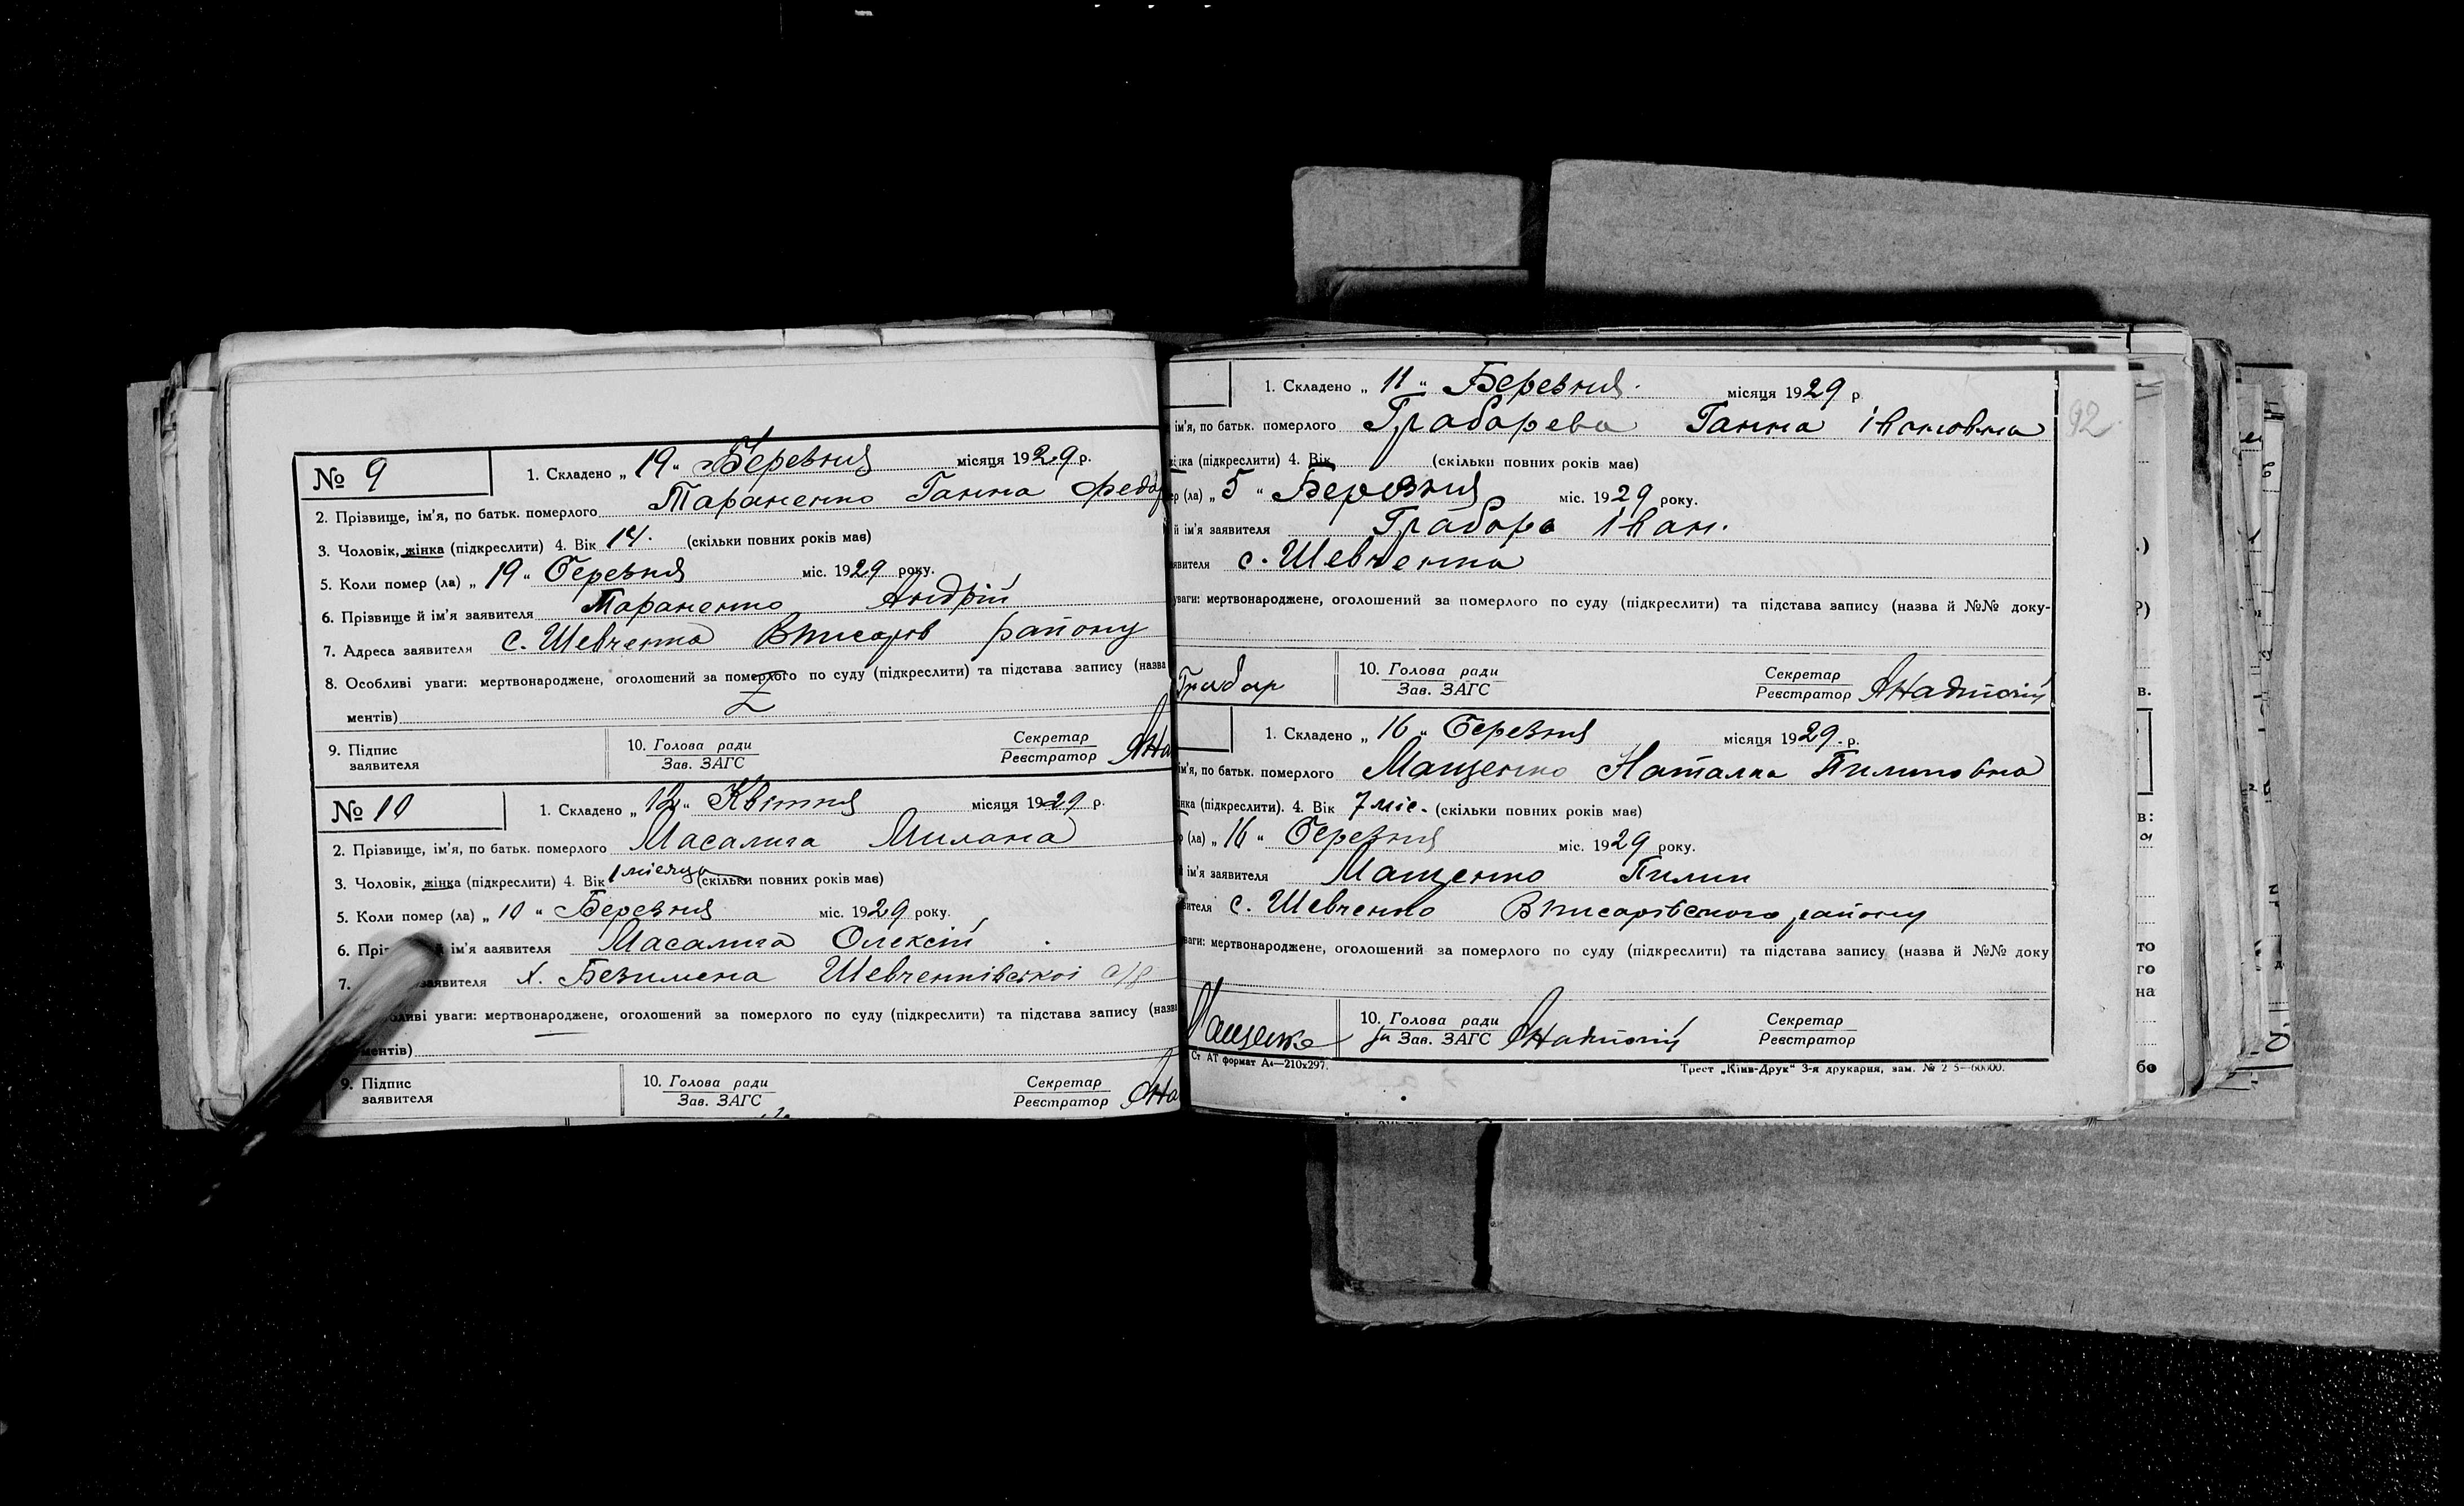 № 9
1. Складено „ 19 „ Березня місяця 1929 р.
2. Прізвище, ім'я, по батьк. померлого Тараненко Ганна Федор
3. Чоловік, жінка (підкреслити) 4. Вік 14. (скільки повних років має)
5. Коли помер (ла) „ 19 „ Березня міс. 1929 року.
6. Прізвище й ім'я заявителя Тараненко Андрій
7. Адреса заявителя с. Шевченка Вписарів району
8. Особливі уваги: мертвонароджене, оголошений за померлого по суду (підкреслити) та підстава запису (назва
ментів) Z
9. Підпис заявителя
10. Голова ради
Зав. ЗАГС
Секретар
Реєстратор
№ 10
1. Складено „ 12 „ Квітня місяця 1929 р.
2. Прізвище, ім'я, по батьк. померлого Масалига Милана
3. Чоловік, жінка (підкреслити) 4. Вік 1 місяць (скільки повних років має)
5. Коли помер (ла) „ 10 „ Березня міс. 1929 року.
6. Прі й ім'я заявителя Масалига Олексій
7. заявителя х. Безимена Шевченківської с/р
ливі уваги: мертвонароджене, оголошений за померлого по суду (підкреслити) та підстава запису (назва
ментів)
9. Підпис
заявителя
10. Голова ради
Зав. ЗАГС
Секретар
Реєстратор
92
1. Складено „ 11 „ Березня. місяця 1929 р
ім'я, по батьк. померлого Грабарева Ганна Івановна
нка (підкреслити) 4. Вік (скільки повних років має)
ер (ла) „ 5 „ Березня міс. 1929 року.
й ім'я заявителя Грабарь Іван.
явителя с. Шевченка
уваги: мертвонароджене, оголошений за померлого по суду (підкреслити) та підстава запису (назва й №№ доку-
Грабар
10. Голова ради
Зав. ЗАГС
Секретар
Реєстратор
1. Складено „ 16 „ Березня місяця 1929 р.
ім'я, по батьк. померлого Мащенко Наталка Пилиповна
нка (підкреслити). 4. Вік 7 міс. (скільки повних років має)
р (ла) „ 16 „ Березня міс. 1929 року.
й ім'я заявителя Мащенко Пилип
явителя с. Шевченко Вписарівського району
уваги: мертвонароджене, оголошений за померлого по суду (підкреслити) та підстава запису (назва й №№ доку
Мащенко
10. Голова ради
за Зав. ЗАГС
Секретар
Реєстратор
Ст АТ формат А4—210х297.
Трест „Київ-Друк" 3-я друкарня, зам. №